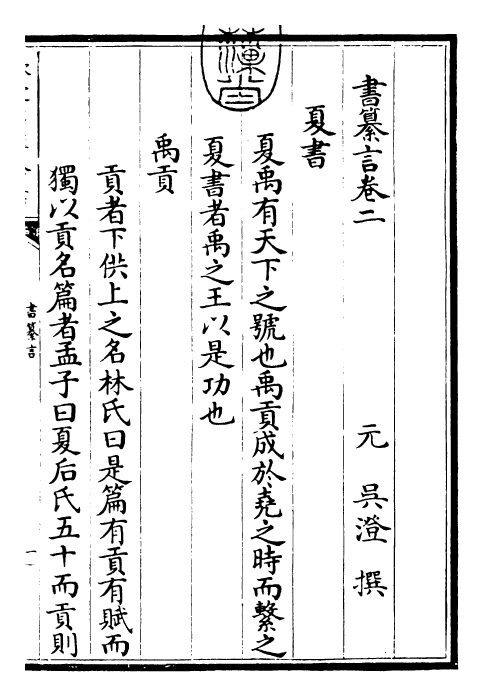 書纂言卷二
元 吳澄 撰
夏書
夏禹有天下之號也禹貢成於堯之時而繫之
夏書者禹之王以是功也
禹貢
貢者下供上之名林氏曰是篇有貢有賦而
獨以貢名篇者孟子曰夏后氏五十而貢貢則
書纂言
一